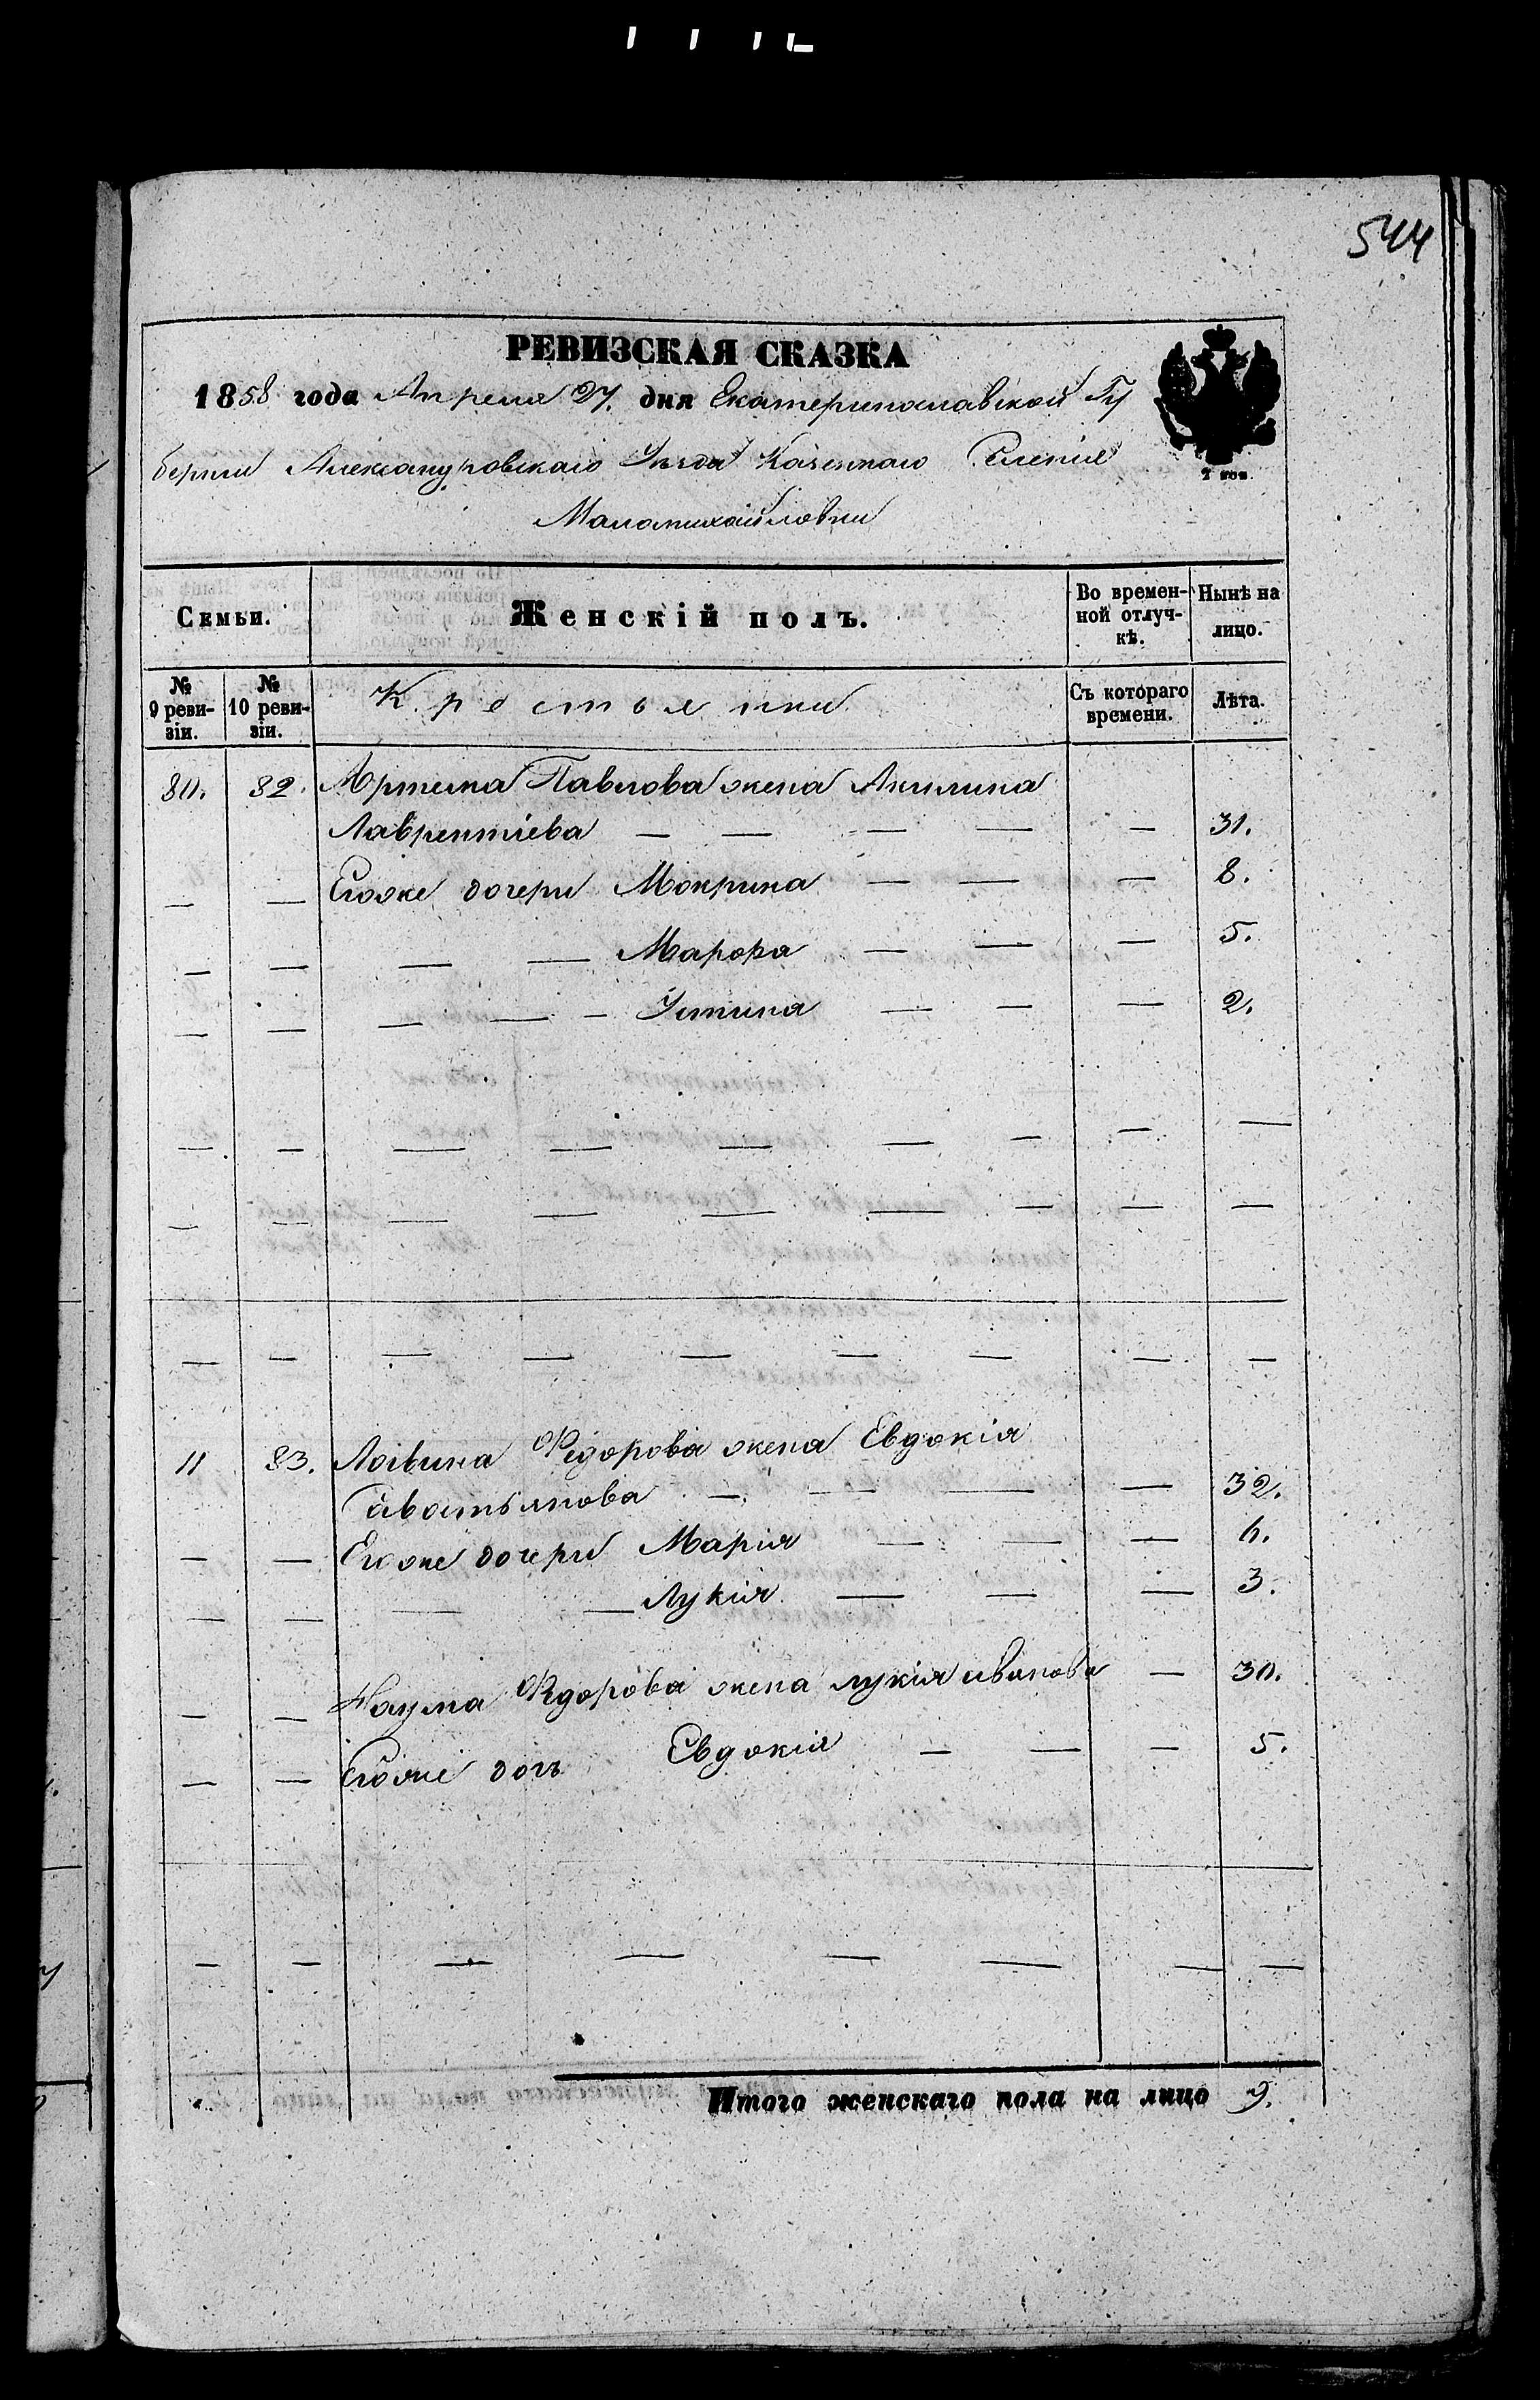 544
РЕВИЗСКАЯ СКАЗКА
1858 года Апреля 27. дня Екатеринославской Гу
берніи Александровскаго Уѣзда Казеннаго Селенія
Маломихайловки
2 коп.
Семьи. Женскій полъ. Во времен- Нынѣ на
ной отлуч- лицо.
кѣ.
№ 9 реви- зіи. № 10 реви- зіи. Крестьянки Съ котораго времени. Лѣта.
80. 82. Артема Павлова жена Акилина
Лаврентіева — — — — — 31.
— — Егоже дочери Мокрина — — — 8.
— — — — Марфа — — — 5.
— — — — — Устина — — — 2.
— — — — — — — — —
— — — — — — — — —
— — — — — — — — —
11 83. Логвина Федорова жена Евдокія
Савостьянова — — — — 32.
— — Егоже дочери Марія — — — 6.
— — — — Лукія — — — 3.
— — Наума Федорова жена лукія иванова — 30.
— — Егоже дочь Евдокія — — — 5.
— — — — — — — —
Итого женскаго пола на лицо 9.